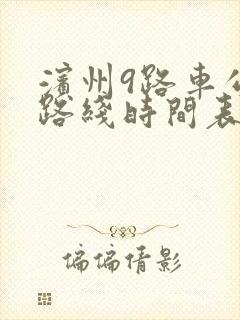 濱州9路車公
路綫時間表
偏偏倩影